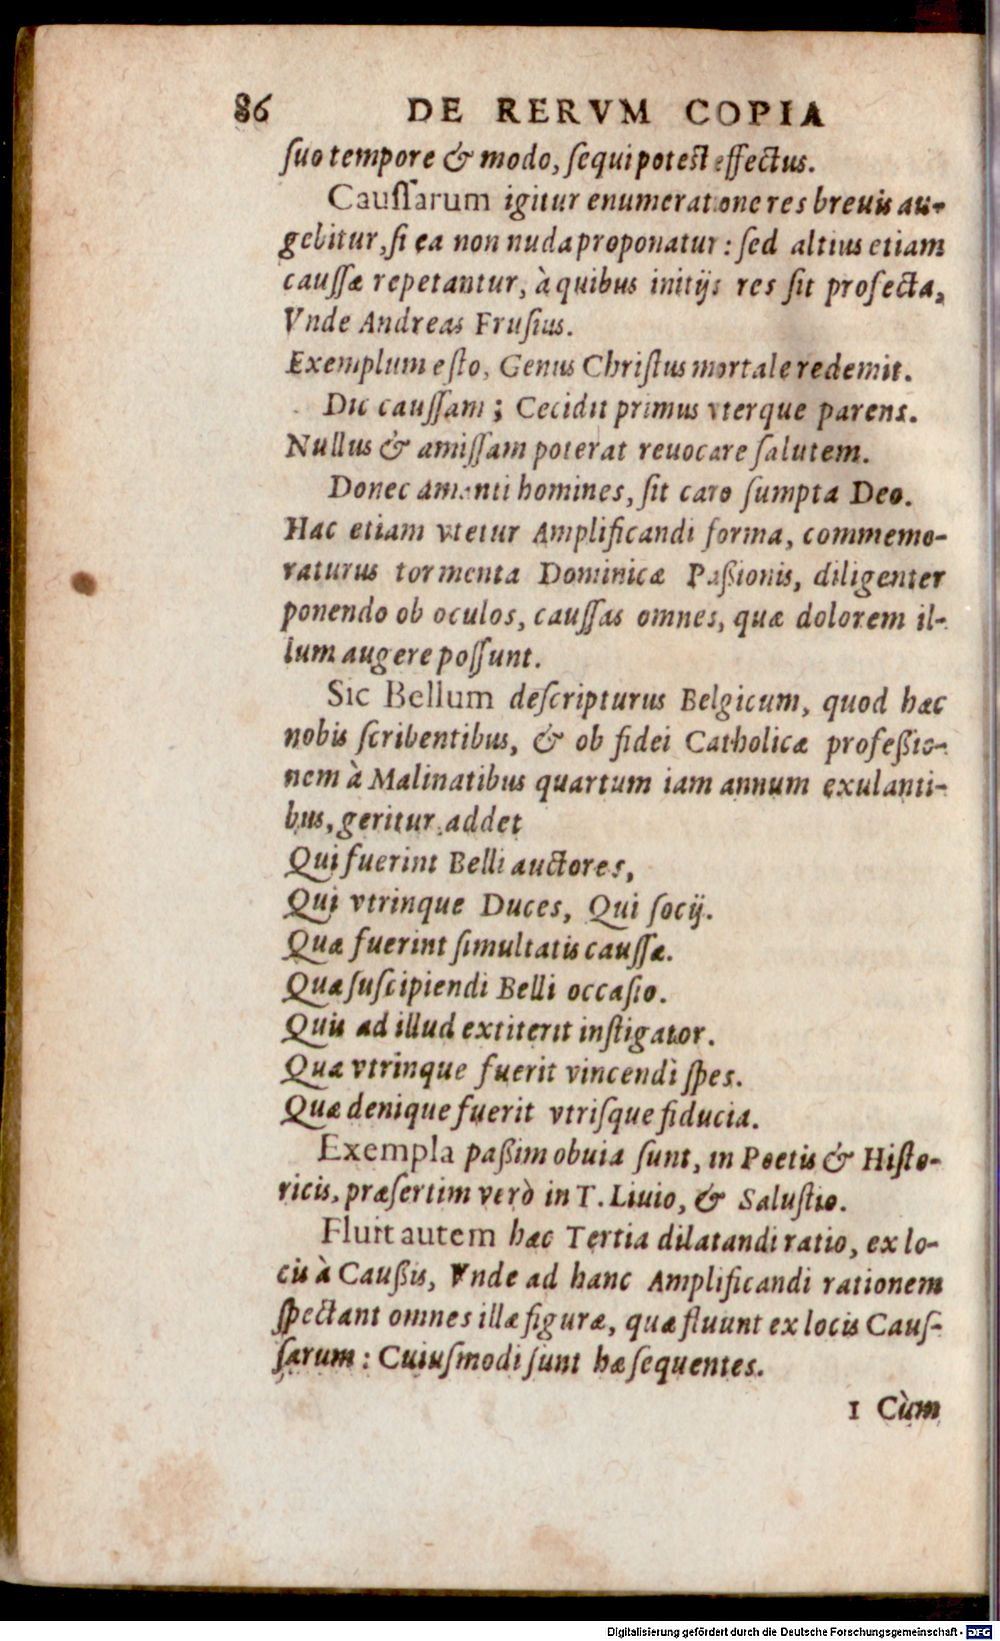 86 DE RERVM COPIA
ſuo tempore & modo, ſequi poteſt effectus.
Cauſſarum igitur enumeratione res breuis au-
gebitur, ſi ea non nuda proponatur: ſed altius etiam
cauſſæ repetantur, à quibus initijs res ſit profecta,
Vnde Andreas Fruſius.
Exemplum eſto, Genus Chriſtus mortale redemit.
Dic cauſſam; Cecidit primus vterque parens.
Nullus & amiſſam poterat reuocare ſalutem.
Donec amanti homines, ſit caro ſumpta Deo.
Hac etiam vtetur Amplificandi forma, commemo-
raturus tormenta Dominicæ Paßionis, diligenter
ponendo ob oculos, cauſſas omnes, quæ dolorem il-
lum augere poſſunt.
Sic Bellum deſcripturus Belgicum, quod hæc
nobis ſcribentibus, & ob fidei Catholicæ profeßio-
nem à Malinatibus quartum iam annum exulanti-
bus, geritur, addet
Qui fuerint Belli auctores,
Qui vtrinque Duces, Qui ſocij.
Quæ fuerint ſimultatis cauſſæ.
Quæ ſuſcipiendi Belli occaſio.
Quis ad illud extiterit inſtigator.
Quæ vtrinque fuerit vincendi ſpes.
Quæ denique fuerit vtriſque fiducia.
Exempla paßim obuia ſunt, in Poetis & Hiſto-
ricis, præſertim verò in T. Liuio, & Saluſtio.
Fluit autem hæc Tertia dilatandi ratio, ex lo-
cis à Caußis, Vnde ad hanc Amplificandi rationem
ſpectant omnes illæ figuræ, quæ fluunt ex locis Cauſ-
ſarum: Cuiuſmodi ſunt hæ ſequentes.
1 Cùm
Digitalisierung gefördert durch die Deutsche Forschungsgemeinschaft - DFG